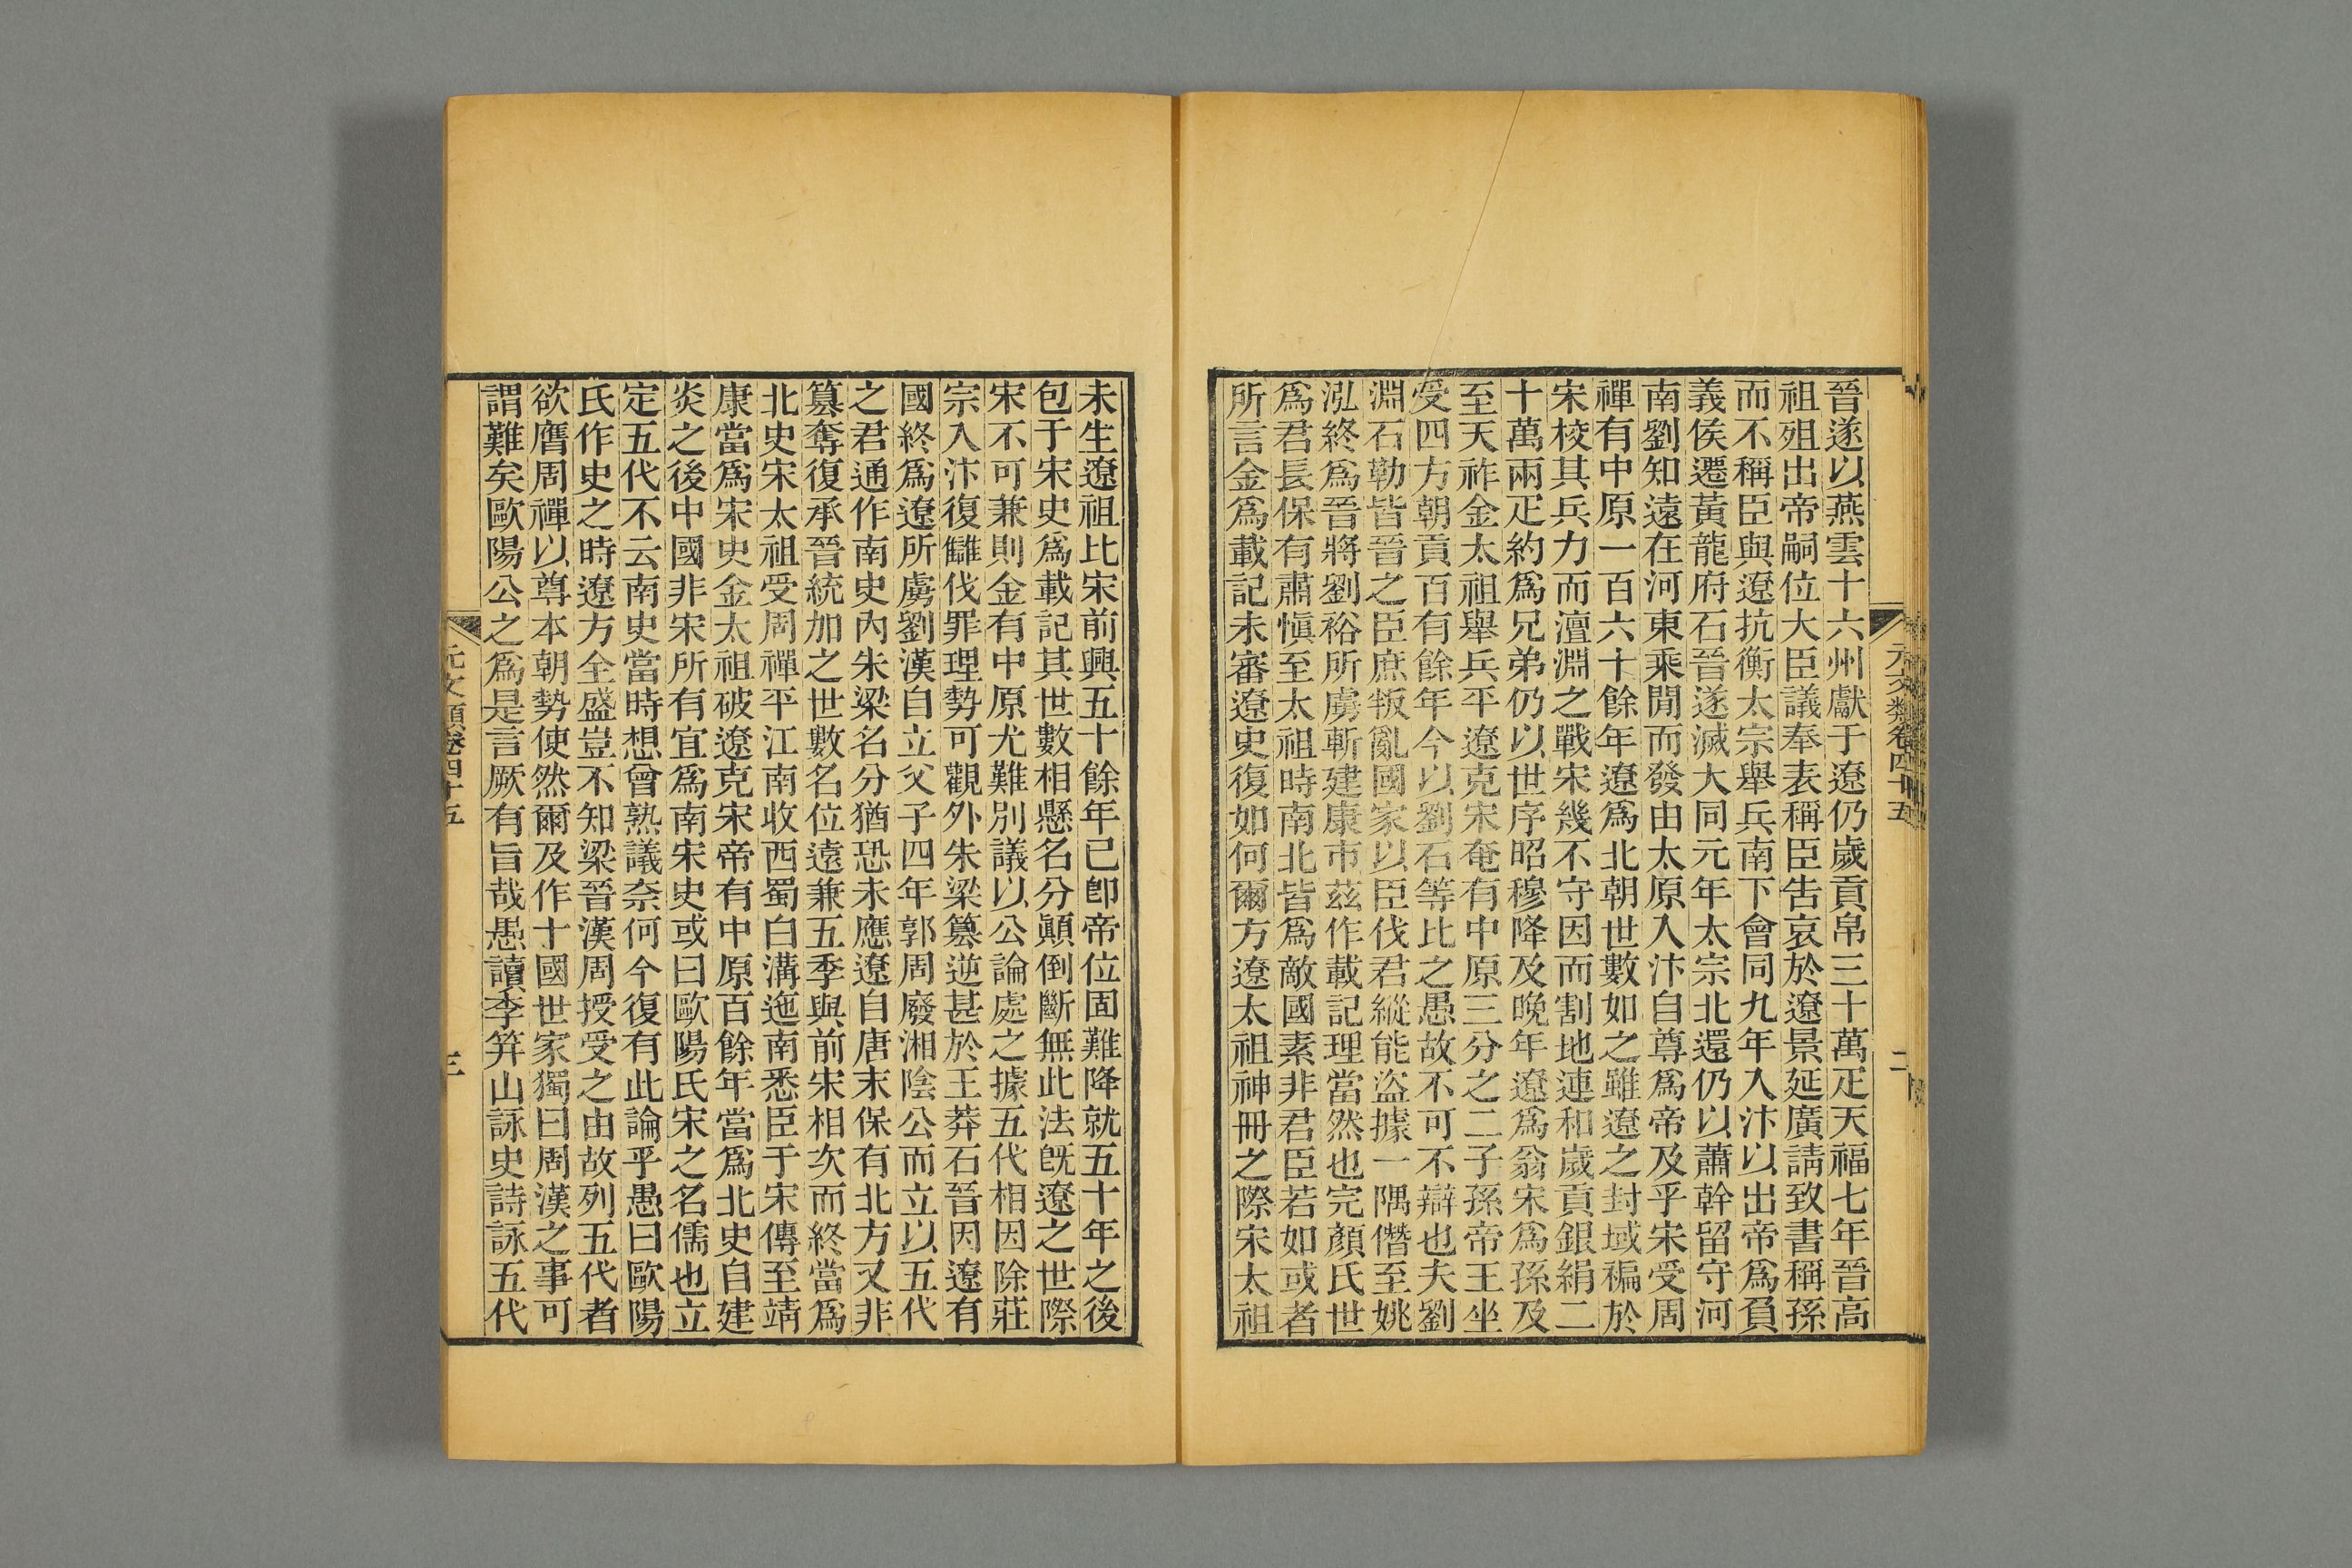 元文類卷四十五
二
晉遂以燕雲十六州獻于遼仍歲貢帛三十萬疋天福七年晉高
祖殂出帝嗣位大臣議奉表稱臣告哀於遼景延廣請致書稱孫
而不稱臣與遼抗衡太宗舉兵南下會同九年入汴以出帝爲負
義侯遷黃龍府石晉遂滅大同元年太宗北還仍以蕭幹留守河
南劉知遠在河東乘閒而發由太原入汴自尊爲帝及乎宋受周
禪有中原一百六十餘年遼爲北朝世數如之雖遼之封域褊於
宋校其兵力而澶淵之戰宋幾不守因而割地連和歲貢銀絹二
十萬兩疋約爲兄弟仍以世序昭穆降及晚年遼爲翁宋爲孫及
至天祚金太祖舉兵平遼克宋奄有中原三分之二子孫帝王坐
受四方朝貢百有餘年今以劉石等比之愚故不可不辯也夫劉
淵石勒皆晉之臣庶叛亂國家以臣伐君縱能盜據一隅僭至姚
泓終爲晉將劉裕所虜斬建康市茲作載記理當然也完顏氏世
爲君長保有肅愼至太祖時南北皆爲敵國素非君臣若如或者
所言金爲載記未審遼史復如何爾方遼太祖神冊之際宋太祖
未生遼祖比宋前興五十餘年已卽帝位固難降就五十年之後
包于宋史爲載記其世數相懸名分顚倒斷無此法旣遼之世際
宋不可兼則金有中原尤難別議以公論處之據五代相因除莊
宗入汴復讎伐罪理勢可觀外朱梁簒逆甚於王莽石晉因遼有
國終爲遼所虜劉漢自立父子四年郭周廢湘陰公而立以五代
之君通作南史內朱梁名分猶恐未應遼自唐末保有北方又非
簒奪復承晉統加之世數名位遠兼五季與前宋相次而終當爲
北史宋太祖受周禪平江南收西蜀白溝迤南悉臣于宋傳至靖
康當爲宋史金太祖破遼克宋帝有中原百餘年當爲北史自建
炎之後中國非宋所有宜爲南宋史或曰歐陽氏宋之名儒也立
定五代不云南史當時想曾熟議奈何今復有此論乎愚曰歐陽
氏作史之時遼方全盛豈不知梁晉漢周授受之由故列五代者
欲膺周禪以尊本朝勢使然爾及作十國世家獨曰周漢之事可
謂難矣歐陽公之爲是言厥有旨哉愚讀李筓山詠史詩詠五代
元文類卷四十五
三